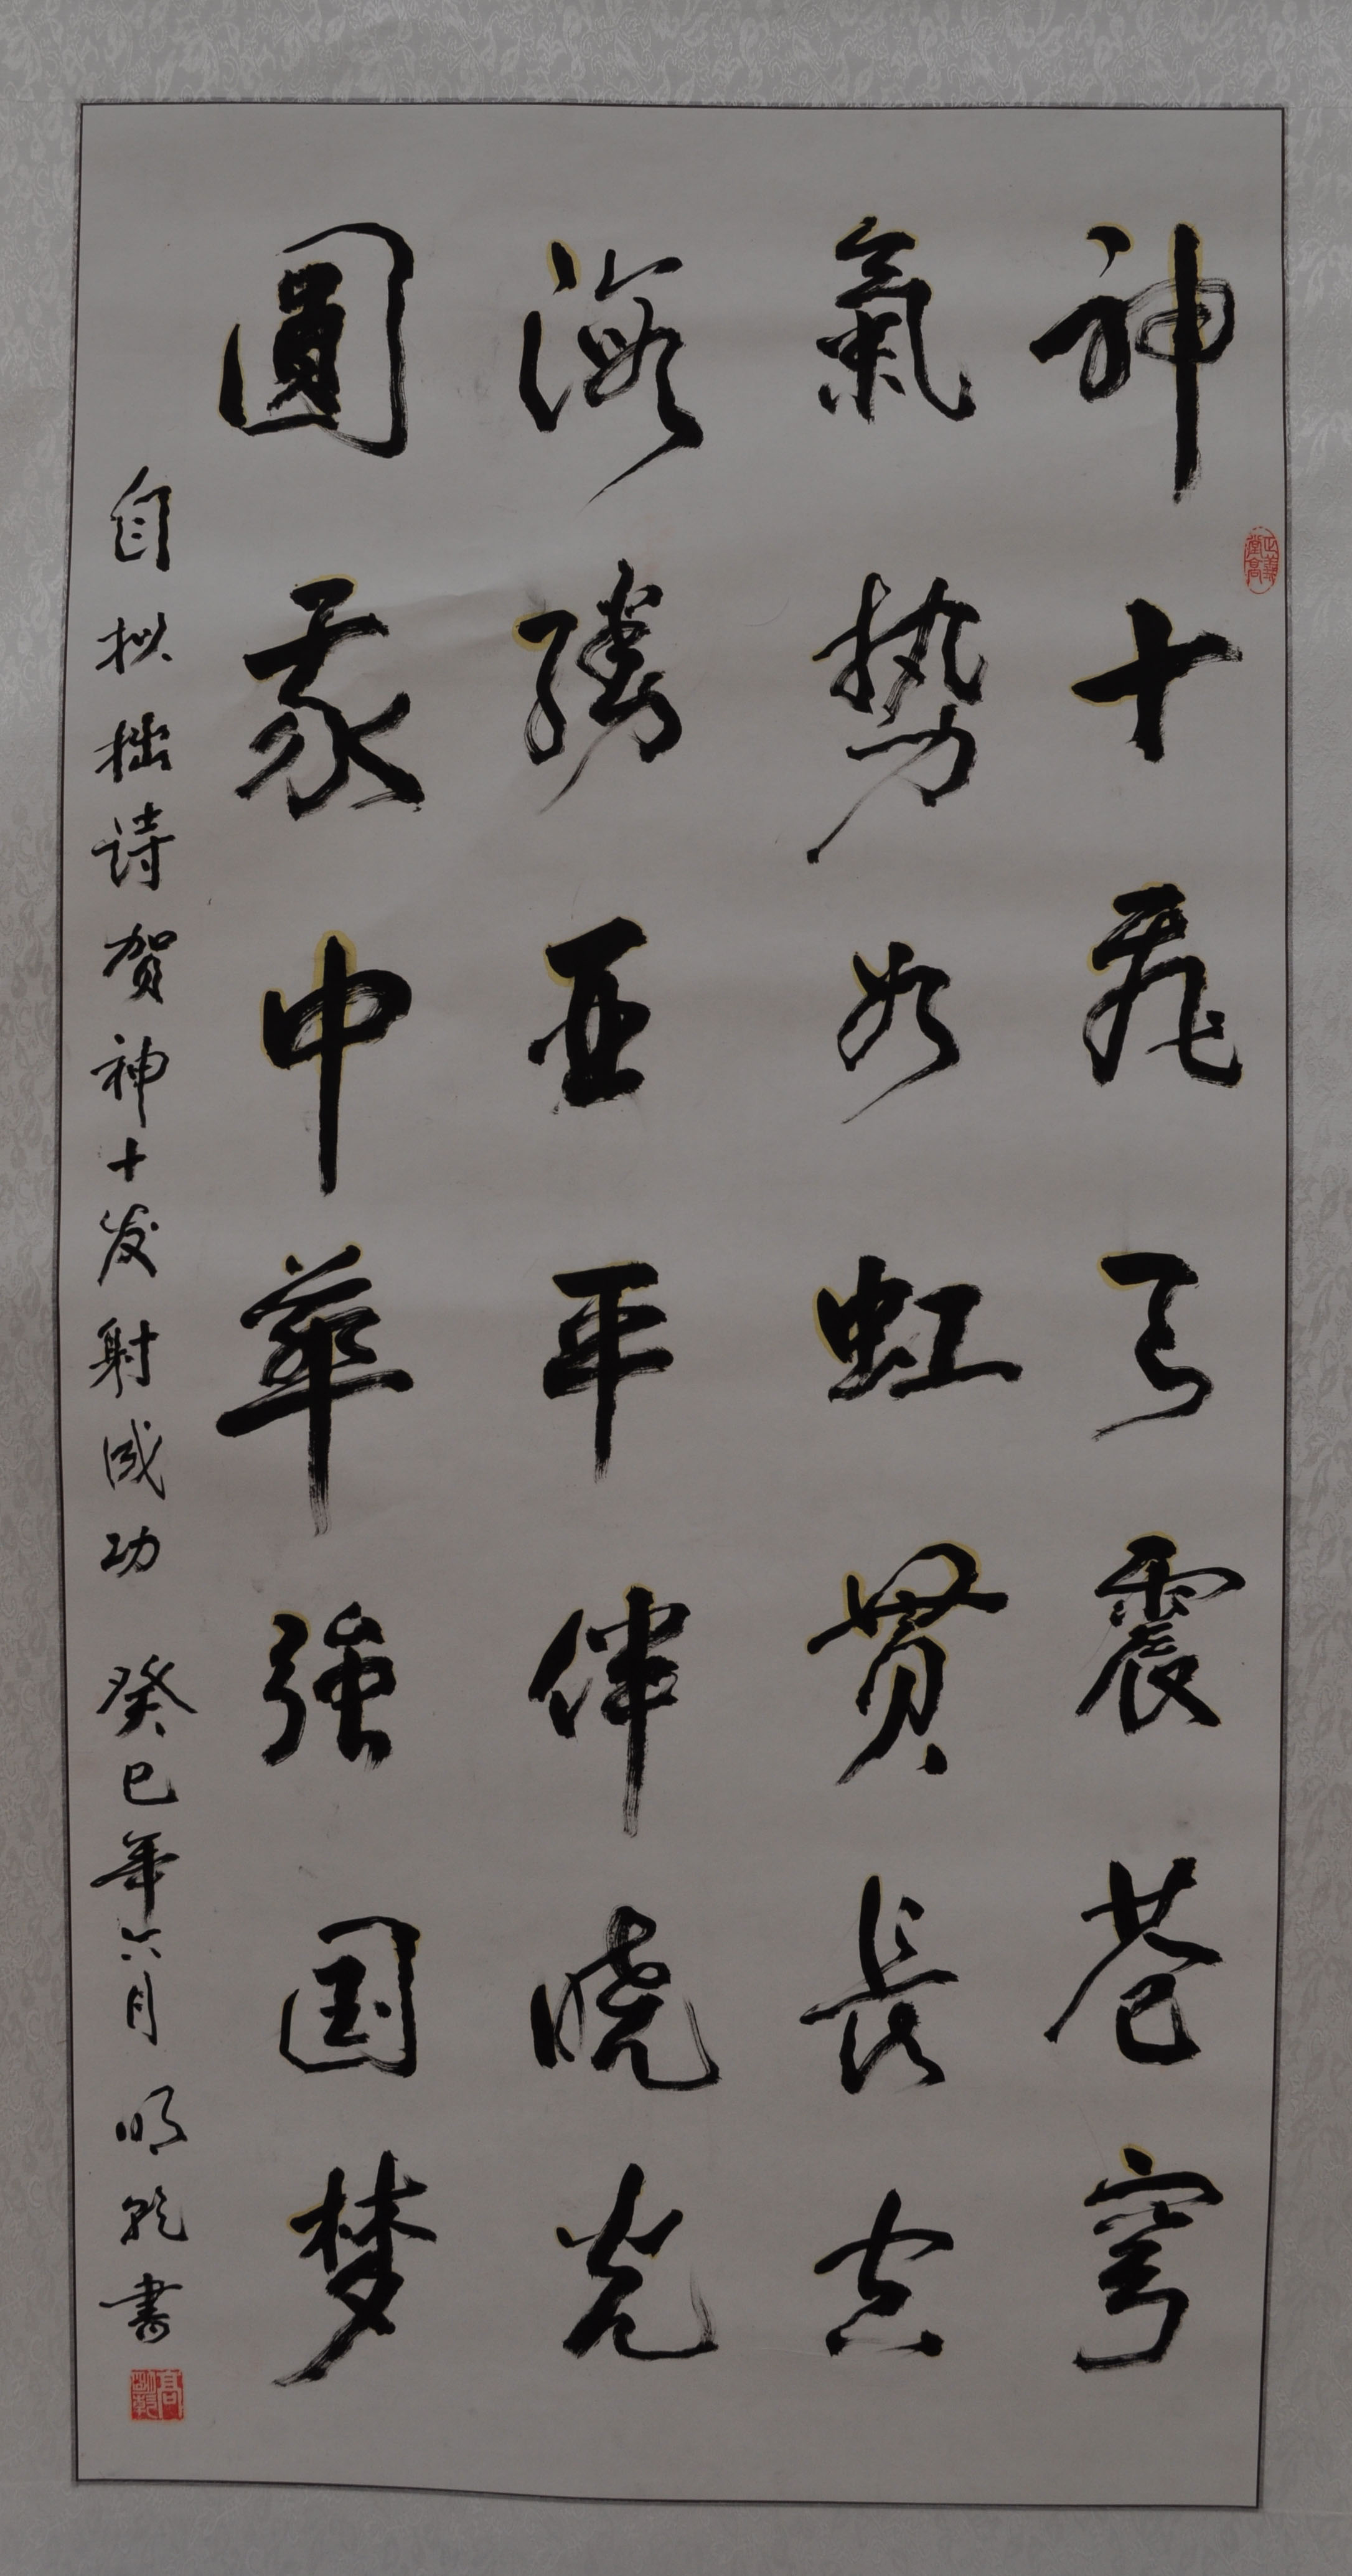 神十飛天震苍穹
氣勢如虹貫長空
海勝亚平伴晓光
圓我中華強国梦
自拟拙诗贺神十发射成功 癸巳年六月 明乾書